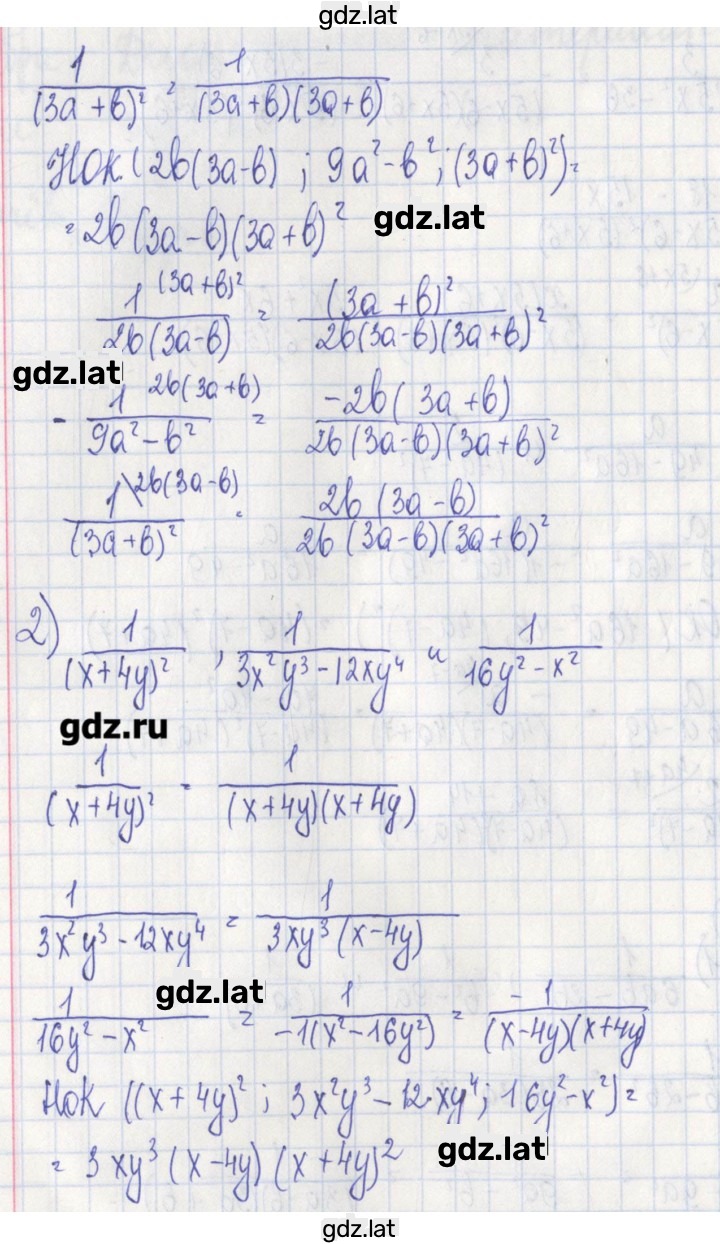 gdz.lat
1/(3a+b)² = 1/((3a+b)(3a+b))
НОК (2b(3a-b) ; 9a²-b²; (3a+b)²)=
= 2b(3a-b)(3a+b)²
gdz.lat
1\(3a+b)²/(2b(3a-b)) = (3a+b)²/(2b(3a-b)(3a+b)²)
gdz.lat
- 1\2b(3a+b)/(9a²-b²) = -2b(3a+b)/(2b(3a-b)(3a+b)²)
1\2b(3a-b)/(3a+b)² = 2b(3a-b)/(2b(3a-b)(3a+b)²)
2) 1/(x+4y)² , 1/(3x²y³-12xy⁴) и 1/(16y²-x²)
gdz.ru
1/(x+4y)² = 1/((x+4y)(x+4y))
1/(3x²y³-12xy⁴) = 1/(3xy³(x-4y))
gdz.lat
1/(16y²-x²) = 1/(-1(x²-16y²)) = -1/((x-4y)(x+4y))
НОК ((x+4y)²; 3x²y³-12·xy⁴; 16y²-x²)=
= 3xy³(x-4y)(x+4y)²
gdz.lat
gdz.lat